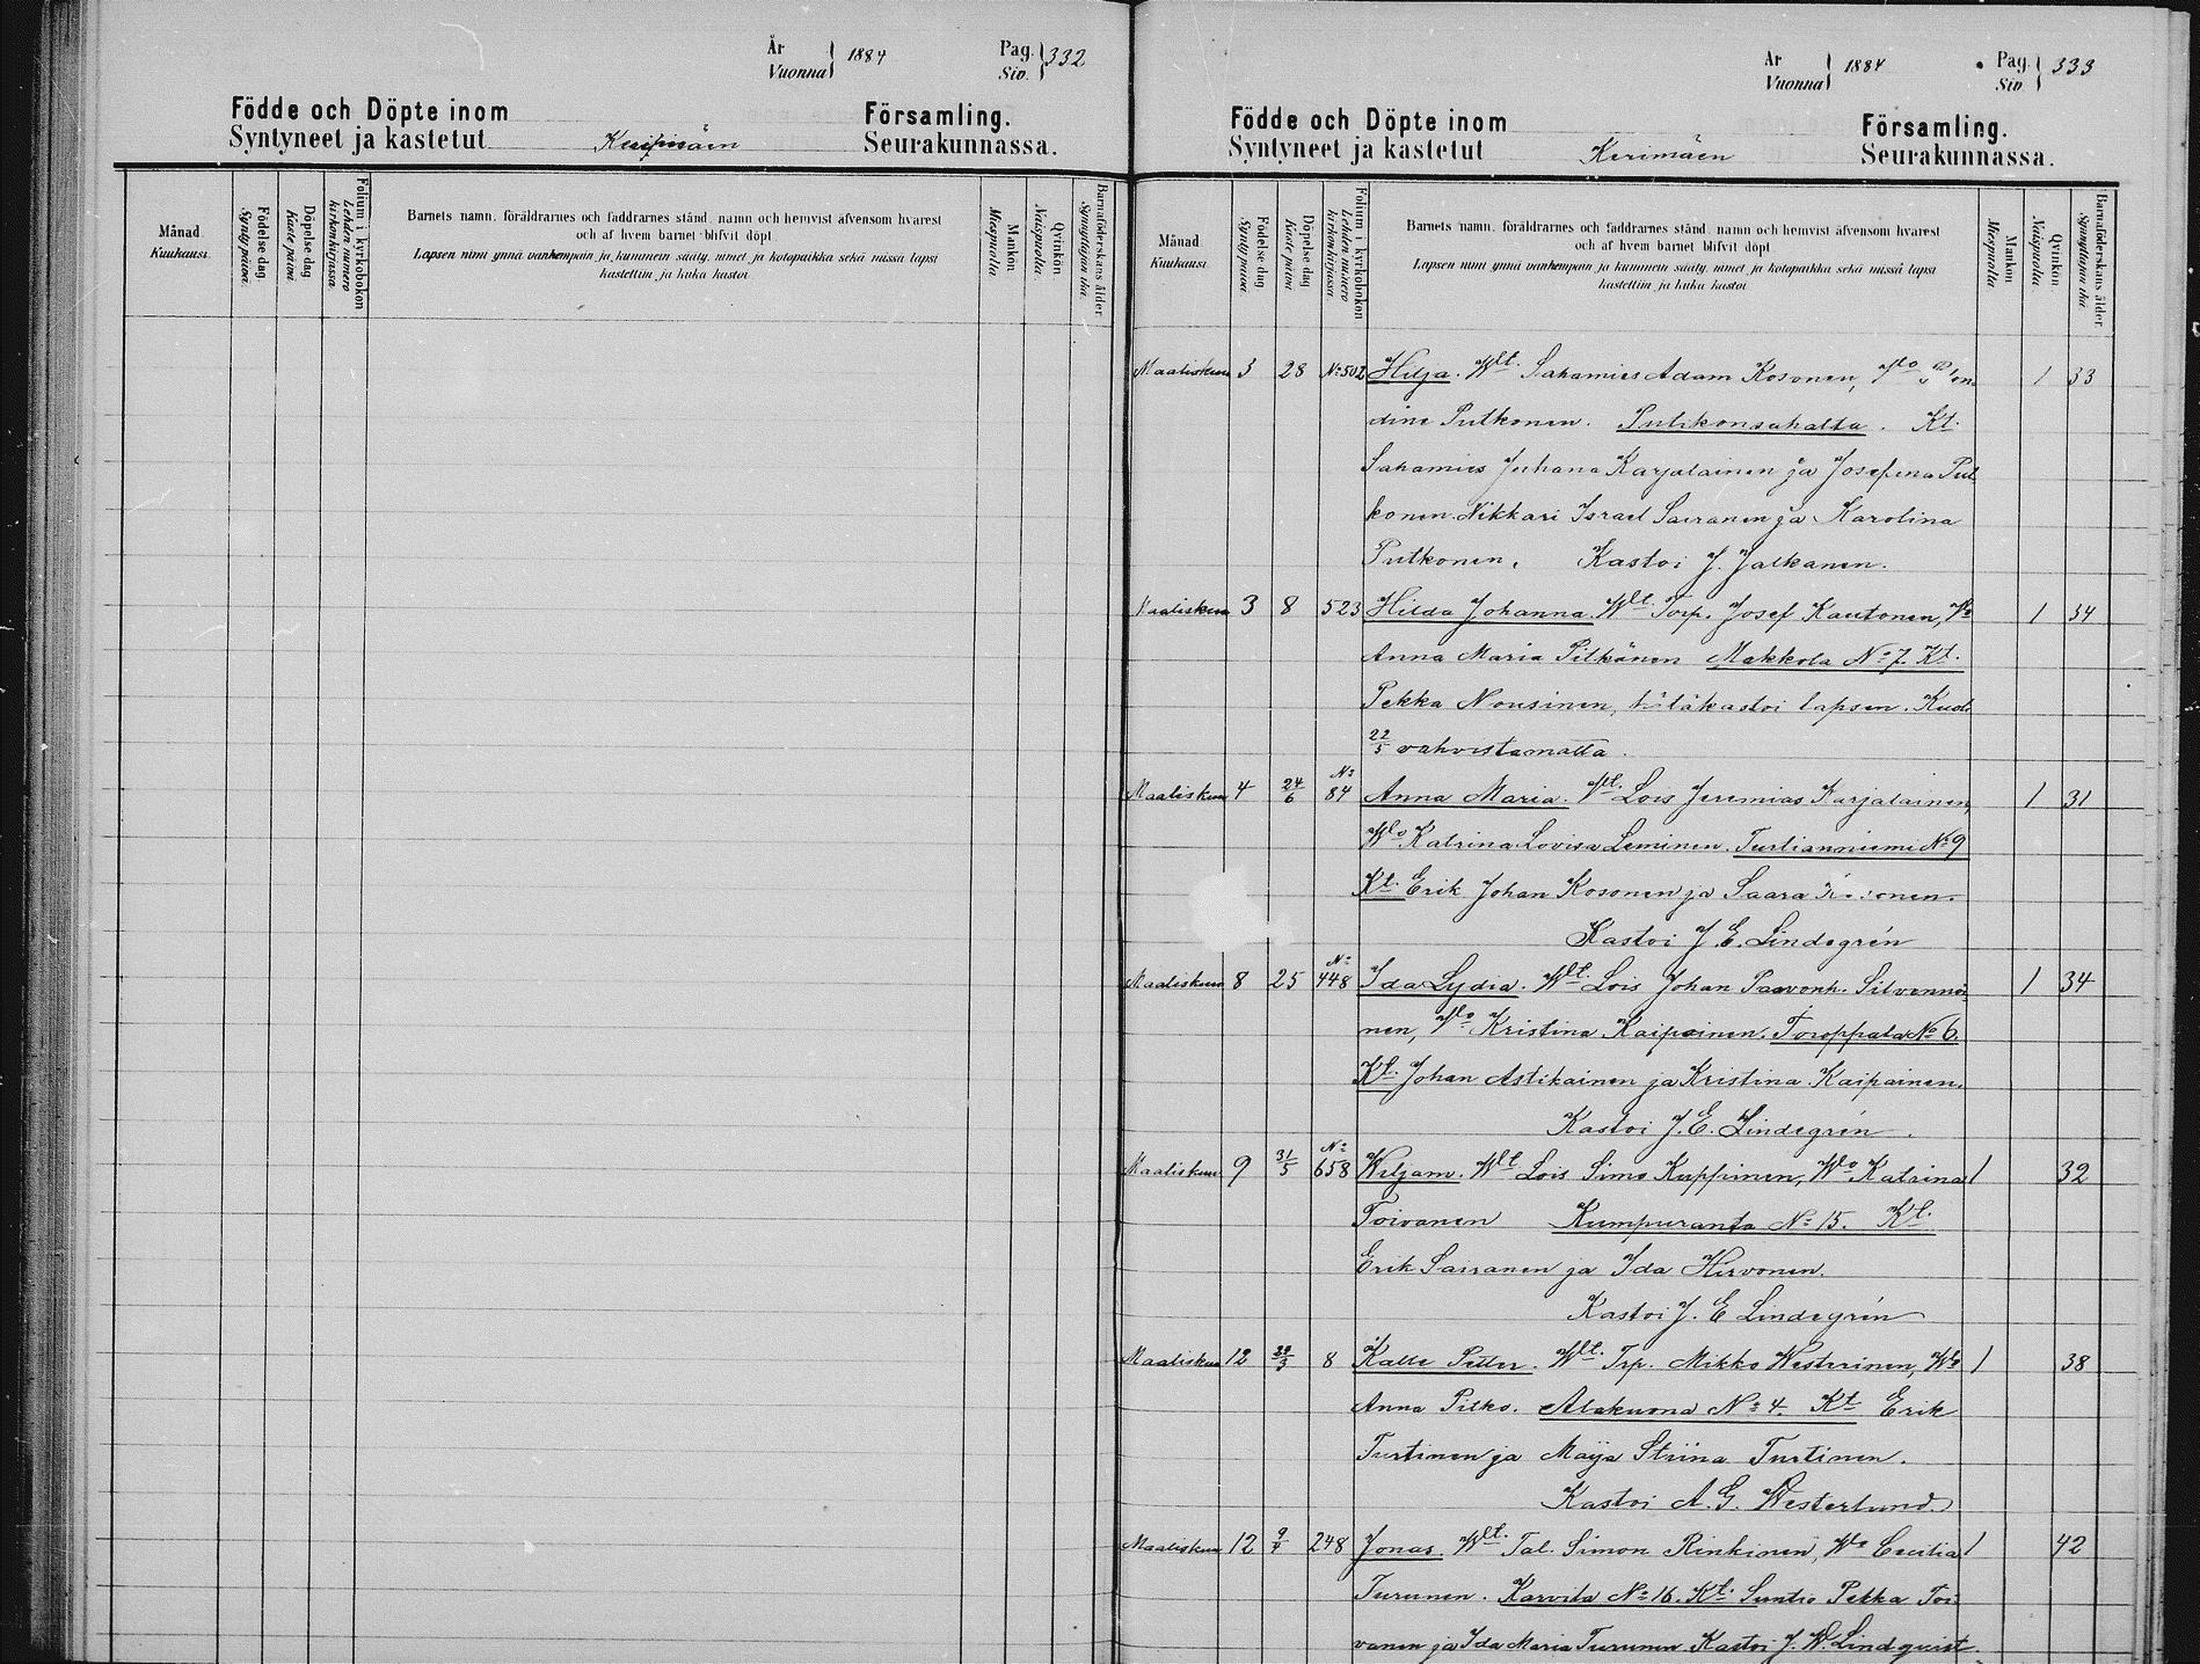 År
Vuonna } 1884
Pag.
Siv. } 332
Födde och Döpte inom
Syntyneet ja kastetut
Församling.
Seurakunnassa.
Månad.
Kuukausi.
Födelse dag
Synty päivä.
Döpelse dag
Kaste päivä
Folium i kyrkoboken
Lehden numero kirkonkirjassa.
Barnets namn, föräldrarnes och faddrarnes stånd, namn och hemvist äfvensom hvarest
och af hvem barnet blifvit döpt.
Lapsen nimi ynnä vanhempain ja kummein sääty, nimet ja kotopaikka sekä missä lapsi
kastettiin ja kuka kastoi.
Mankön
Miespuolia
Qvinkön
Naispuolia.
Barnaföderskans ålder
Synnyttäjän ikä.
År
Vuonna } 1884
Pag.
Siv } 333
Födde och Döpte inom
Syntyneet ja kastetut
Kerimäen
Församling.
Seurakunnassa.
Månad
Kuukausi
Födelse dag
Synty päivä.
Döpelse dag
Kaste päivä
Folium i kyrkoboken
Lehden numero kirkonkirjassa.
Barnets namn, föräldrarnes och faddrarnes stånd, namn och hemvist äfvensom hvarest
och af hvem barnet blifvit döpt.
Lapsen nimi ynnä vanhempain ja kummein sääty, nimet ja kotopaikka sekä missä lapsi
kastettiin ja kuka kastoi
Mankön
Miespuolia
Qvinkön
Naispuolia.
Barnaföderskans ålder
Synnyttäjän ikä
Maaliskuu 3 28 No 502 Hilja. Wlt. Sahamies Adam Kosonen, Wo 1 33
dine Putkonen. Putkonsahalta. Kt.
Sahamies Juhana Karjalainen ja Josefina Put
konen. Nikkari Israel Sairanen ja Karolina
Putkonen. Kastoi J. Jalkanen.
Maaliskuu 3 8 523 Hilda Johanna. Wlt. Torp. Josef Kautonen, Wo 1 34
Anna Maria Pitkänen Makkola No 7. Kt.
Pekka Nousinen, hätäkastoi lapsen. Kuol.
22/5 vahvistamatta.
Maaliskuu 4 24/6 No 84 Anna Maria. Wlt. Lois Jeremias Karjalainen, 1 31
Wo Katrina Lovisa Leminen. Turtianniemi No 9
Kt. Erik Johan Kosonen ja Saara
Kastoi J. E. Lindegrén
Maaliskuu 8 25 No 448 Ida Lydia. Wlt. Lois Johan Paavonh. Silvennoi 1 34
nen, Wo Kristina Kaipainen. Toroppala No 6.
Kt. Johan Astikainen ja Kristina Kaipainen.
Kastoi J. E. Lindegrén.
Maaliskuu 9 31/5 No 658 Wiljam. Wlt Lois Simo Kuppinen, Wo Katrina 1 32
Toivanen Kumpuranta No 15. Kt.
Erik Sairanen ja Ida Hirvonen.
Kastoi J. E Lindegrén
Maaliskuu 12 29/3 8 Kalle Petter. Wlt. Trp. Mikko Westerinen, Wo 1 38
Anna Pitko. Alakuona No 4. Kt Erik
Turtinen ja Maija Stiina Turtinen.
Kastoi A. G. Westerlund.
Maaliskuu 12 9/4 248 Jonas. Wlt. Tal. Simon Rinkinen, Wo Cecilia 1 42
Turunen. Karvila No 16. Kt. Suntio Pekka Toi
vanen ja Ida Maria Turunen Kastoi J. W. Lindqvist.